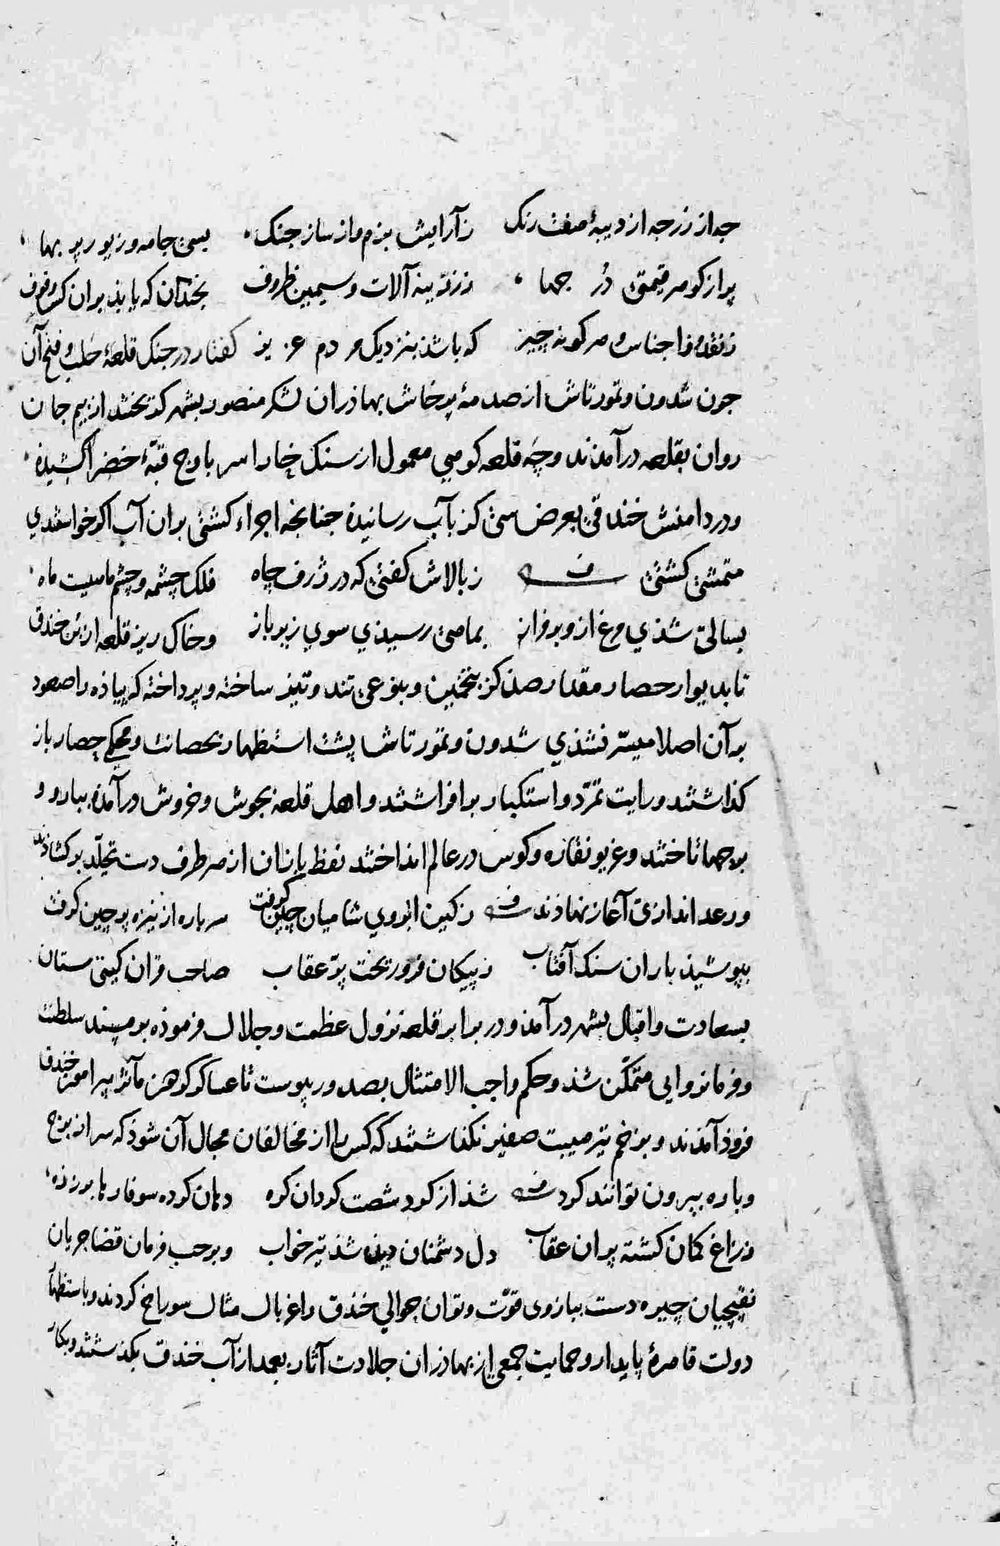 چه از زر چه از دیبهٔ هفت رنک ز آرایش بزم و از ساز جنک بسی جامه و زیور پر بها
پر از کوهر قیمتی درجها ز زرّینه آلات و سیمین ظروف نچندان که یابد بران کس وقوف
ز نقد و ز اجناس و هر کونه چیز که باشد بنزدیک مردم عزیز کفتار در جنک قلعهٔ حلب و فتح آن
جون شدون و تمورتاش از صدمهٔ پرخاش بهاذران لشکر منصور بشهر کریختند از بیم جان
روان بقلعه درآمدند و چه قلعه کوهی معمول از سنک خارا سر باوج قبّهٔ خضرا کشیذه
و در دامنش خندقی بعرض سی کز بآب رسانیذه جنانچه اجراء کشتی بران آب اکر خواستندی
متمشّی کشتی ز بالاش کفتی که در ژرف چاه فلک چشمه و چشم ماهیست ماه
بسالی شذی مرغ ازو بر فراز بماهی رسیذی سوی زیر باز و خاک ریز قلعه از بن خندق
تا بدیوار حصار مقدار صد کز بتخمین و بنوعی تند و تیز ساخته و پرداخته که پیاذه را صعود
بر آن اصلا میسّر نشذی شدون و تمورتاش پشت استظهار بحصانت و محکمی حصار باز
کذاشتند و رایت تمرّد و استکبار برافراشتند و اهل قلعه بجوش و خروش درآمذه ببارو و
برجها تاختند و غریو نقاره و کوس در عالم انداختند نفظ یازان از هر طرف دست تجلّد برکشاذند
و رعد اندازی آغاز نهاذند ز کین ابروی شامیان چین کرفت سر باره از نیزه پرچین کرفت
بپوشیذ باران سنک آفتاب ز پیکان فرو ریخت پرّ عقاب صاحب قران کیتی ستان
بسعادت و اقبال بشهر درآمذ و در برابر قلعه نزول عظمت و جلال فرموذه بر مسند سلطنت
و فرمانروایی متمکّن شذ و حکم واجب الامتثال بصدور پیوست تا عساکر کوهر مآثر پیرامون خندق
فروذ آمذند و بزخم تیر هیبت صفیر نکذاشتند که کسی را از مخالفان مجال آن شوذ که سر از برج
و باره بیرون توانند کرد شذ از کرد شصت کردان کره دهان کرده سوفارها بر زه
ز زاغ کمان کشته پران عقاب دل دشمنان دیذه شذ تیر خواب و بر حسب فرمان قضا جریان
نقبچیان چیره دست ببازوی قوّت و توان حوالی خندق را غربال مثال سوراخ کردند و باستظهار
دولت قاهرهٔ پایدار و حمایت جمعی از بهاذران جلادت آثار بعمد از آب خندق بکذشتند و بکار